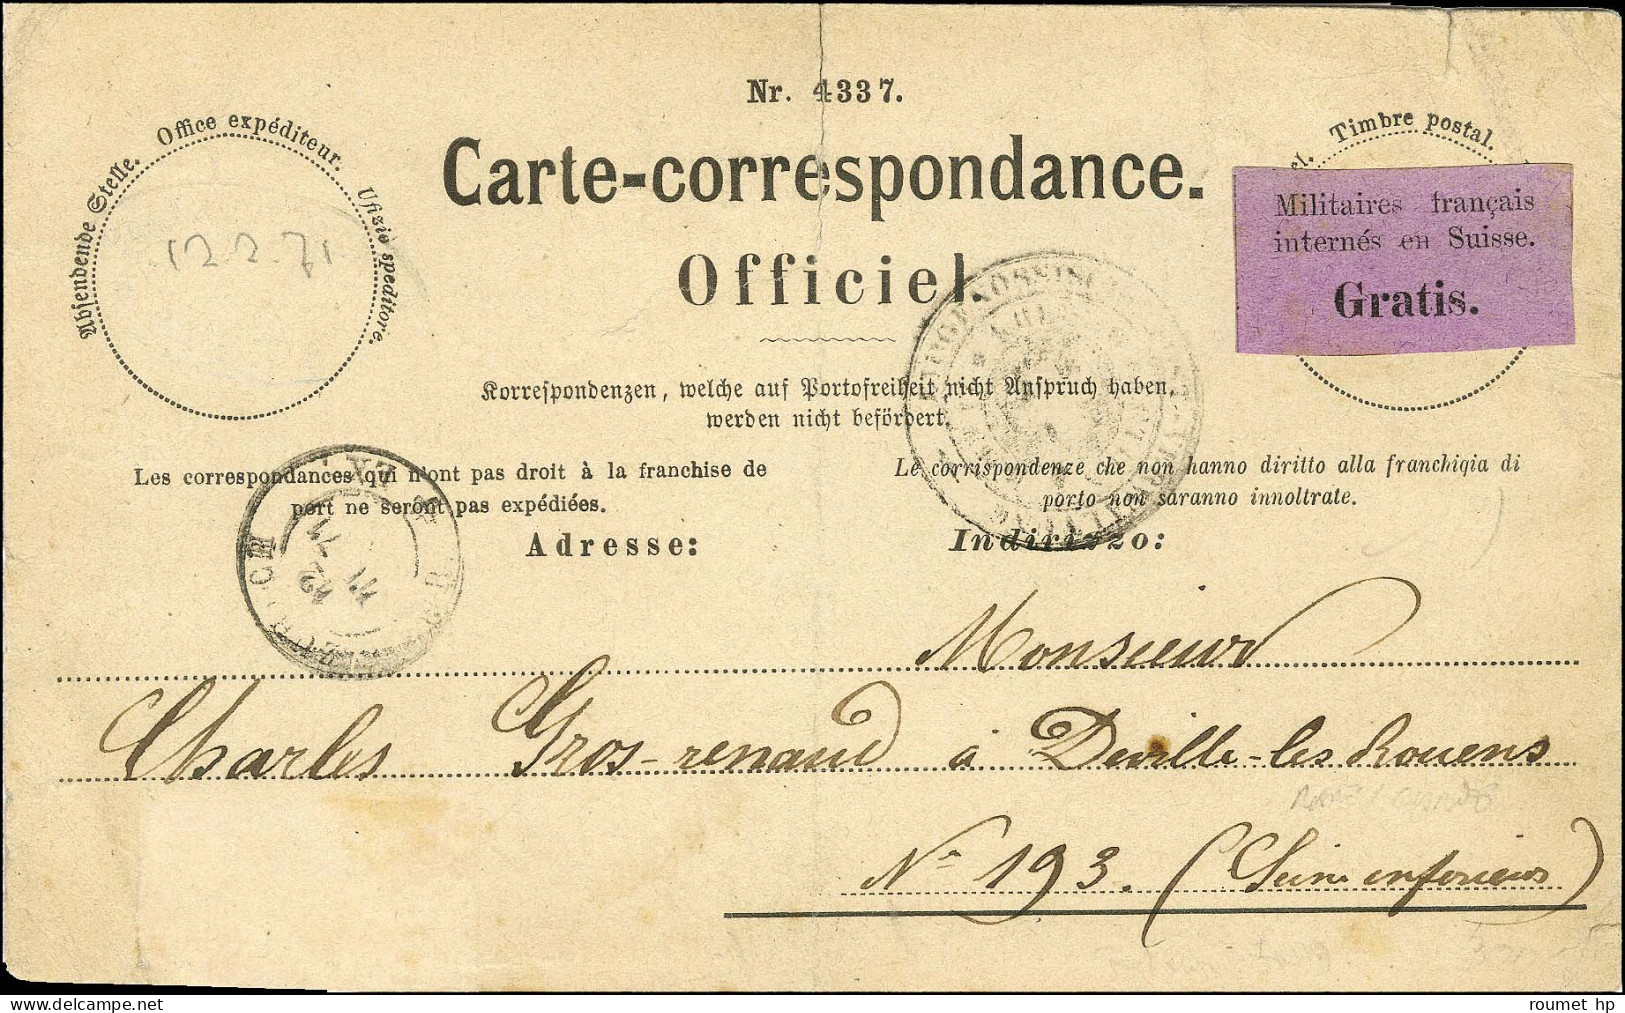 Nr. 4337.
Absendende Stelle. Office expéditeur. Ufizio speditore.
Timbre postal.
Carte-correspondance.
Officiel.
Militaires français
internés en Suisse.
Gratis.
12.2.71
Korrespondenzen, welche auf Portofreiheit nicht Anspruch haben,
werden nicht befördert.
Les correspondances qui n'ont pas droit à la franchise de
port ne seront pas expédiées.
Le corrispondenze che non hanno diritto alla franchigia di
porto non saranno innoltrate.
Adresse:
Indirizzo:
Monsieur
Charles Gros-renaud à Deville-les Rouens
N° 193. (Seine inferieure)
delcampe.net
roumet_hp